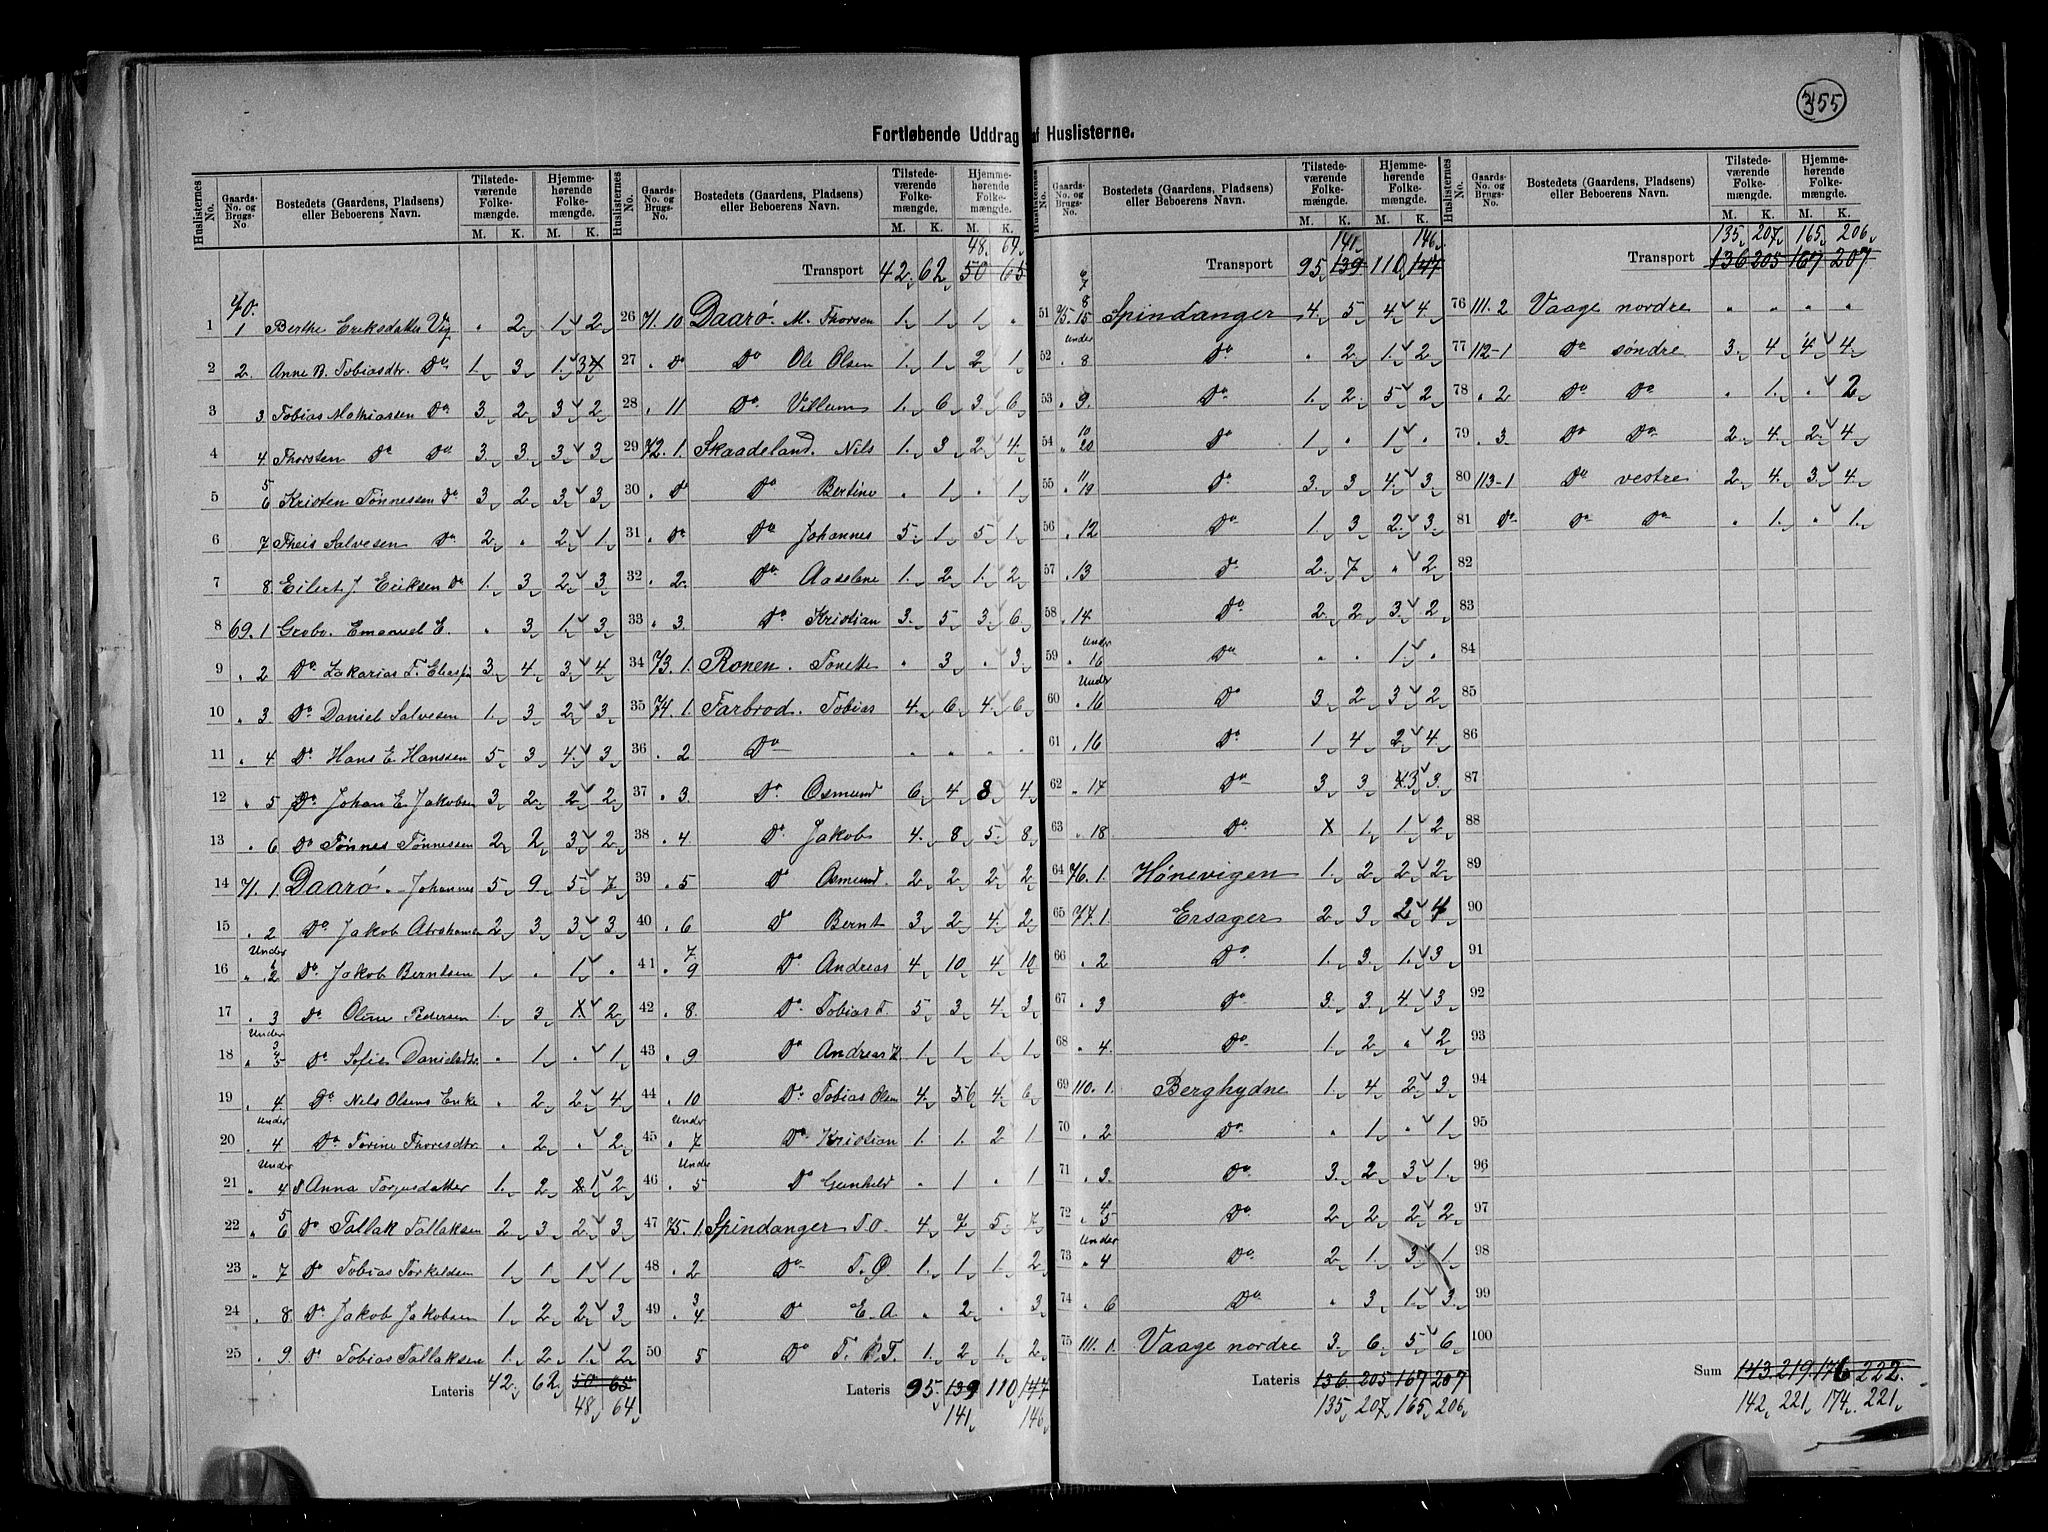 355
Fortløbende Uddrag af Huslisterne.
Huslisternes No. Gaards-No. og Brugs-No. Bostedets (Gaardens, Pladsens) eller Beboerens Navn. Tilstedeværende Folkemængde. M. K. Hjemmehørende Folkemængde. M. K.
70.
1 1 Berthe Eriksdatter Vig " 2 1 2
2 2. Anne B. Tobiasdtr. Do 1 3 1 3
3 3 Tobias Mathiassen Do 3 2 3 2
4 4 Thorsten Do Do 3 3 3 3
5 5 6 Kristen Tønnessen Do 3 2 3 3
6 7 Theis Salvesen Do 2 " 2 1
7 8 Eilert J. Eriksen Do 1 3 2 3
8 69. 1 Grebo. Emanuel E. " 3 1 3
9 " 2 Do Zakarias T. 3 4 3 4
10 " 3 Do Daniel Salvesen 1 3 2 3
11 " 4 Do Hans E Hanssen 5 3 4 3
12 " 5 Do Johan E. Jakobsen 3 2 2 2
13 " 6 Do Tønnes Tønnessen 2 2 3 2
14 71. 1. Daarø. Johannes 5 9 5 7
15 " 2 Do Jakob Abrahamsen 2 3 3 3
16 Under " 2 Do Jakob Berntsen 1 " 1 "
17 " 3 Do Oline Pedersen 1 3 1 2
18 Under 3 " 5 Do Sofie Danielsdtr " 1 " 1
19 " 4 Do Nils Olsens Enke " 2 2 4
20 Under " 4 Do Torine Thoresdtr. " 2 " 2
21 Under " 4 Do Anna Torjusdatter 1 2 1 2
22 5 " 6 Do Tallak Tallaksen 2 3 2 3
23 " 7 Do Tobias Torkeldsen 1 1 1 1
24 " 8 Do Jakob Jakobsen 1 2 2 3
25 " 9. Do Tobias Tallaksen 1 2 1 2
Lateris 42 62 50 65
48 64
Huslisternes No. Gaards-No. og Brugs-No. Bostedets (Gaardens, Pladsens) eller Beboerens Navn. Tilstedeværende Folkemængde. M. K. Hjemmehørende Folkemængde. M. K.
48 64
Transport 42 62 50 65
26 71. 10 Daarø. M. Thorsen 1 1 1 "
27 " Do Do Ole Olsen 1 1 2 1
28 " 11 Do Villum 1 6 3 6
29 72. 1. Skaadeland. Nils 1 3 2 4
30 " Do Do Bertine " 1 " 1
31 " Do Do Johannes 5 1 5 1
32 " 2. Do Aaselene 1 2 1 2
33 " 3. Do Kristian 3 5 3 6
34 73. 1. Ronen. Tonette " 3 " 3
35 74. 1. Farbrod. Tobias 4 6 4 6
36 " 2 Do " " " "
37 " 3. Do Osmund 6 4 8 4
38 " 4 Do Jakob 4 8 5 8
39 " 5 Do Osmund. 2 2 2 2
40 " 6 Do Bernt 3 2 4 2
41 7 " 9 Do Andreas 4 10 4 10
42 " 8. Do Tobias T. 5 3 4 3
43 " 9 Do Andreas 1 1 1 1
44 " 10 Do Tobias Olsen 4 6 4 6
45 Under " 7 Do Kristian 1 1 2 1
46 Under " 5 Do Gunhild " 1 " 1
47 75. 1. Spindanger T. O. 4 7 5 7
48 " 2 Do T. O. 1 1 1 2
49 3 " 4. Do E. A. " 2 " 3
50 5 Do T. B. T. 1 2 1 2
Lateris 95 139 110 147
141 146
No. Gaards-No. og Brugs-No. Bostedets (Gaardens, Pladsens) eller Beboerens Navn. Tilstedeværende Folkemængde. M. K. Hjemmehørende Folkemængde. M. K.
141 146
Transport 95 139 110 147
51 75. 6 7 8 15 Spindanger 4 5 4 4
52 Under " 8 Do " 2 1 2
53 " 9. Do 1 2 5 2
54 10 " 20 Do 1 " 1 "
55 11 " 19 Do 3 3 4 3
56 " 12 Do 1 3 2 3
57 " 13 Do 2 7 " 2
58 " 14 Do 2 2 3 2
59 Under " 16 Do " " 1 "
60 Under " 16 Do 3 2 3 2
61 " 16 Do 1 4 2 4
62 " 17 Do 3 3 3 3
63 " 18 Do 1 1 2
64 76. 1. Hønevigen 1 2 2 2
65 77. 1 Ersager 2 3 2 4
66 " 2 Do 1 3 1 3
67 " 3 Do 3 3 4 3
68 " 4. Do 1 2 " 2
69 110. 1. Berghydne 1 4 2 3
70 " 2 Do " 1 " 1
71 " 3. Do 3 2 3 1
72 4 " 5 Do 2 2 2 2
73 Under " 4 Do 2 1 3 1
74 " 6 Do " 3 1 3
75 111. 1. Vaage nordre 3 6 5 6
Lateris 136 205 167 207
135 207 165 206
Huslisternes No. Gaards-No. og Brugs-No. Bostedets (Gaardens, Pladsens) eller Beboerens Navn. Tilstedeværende Folkemængde. M. K. Hjemmehørende Folkemængde. M. K.
135 207 165 206
Transport 136 205 167 207
76 111. 2 Vaage nordre " " " "
77 112-1 Do søndre 3 4 4 4
78 " 2 Do Do " 1 " 2
79 " 3. Do Do 2 4 2 4
80 113-1 Do vestre 2 4 3 4
81 Do Do Do " 1 " 1
82
83
84
85
86
87
88
89
90
91
92
93
94
95
96
97
98
99
100
Sum 143 219 176 222
142 221 174 221